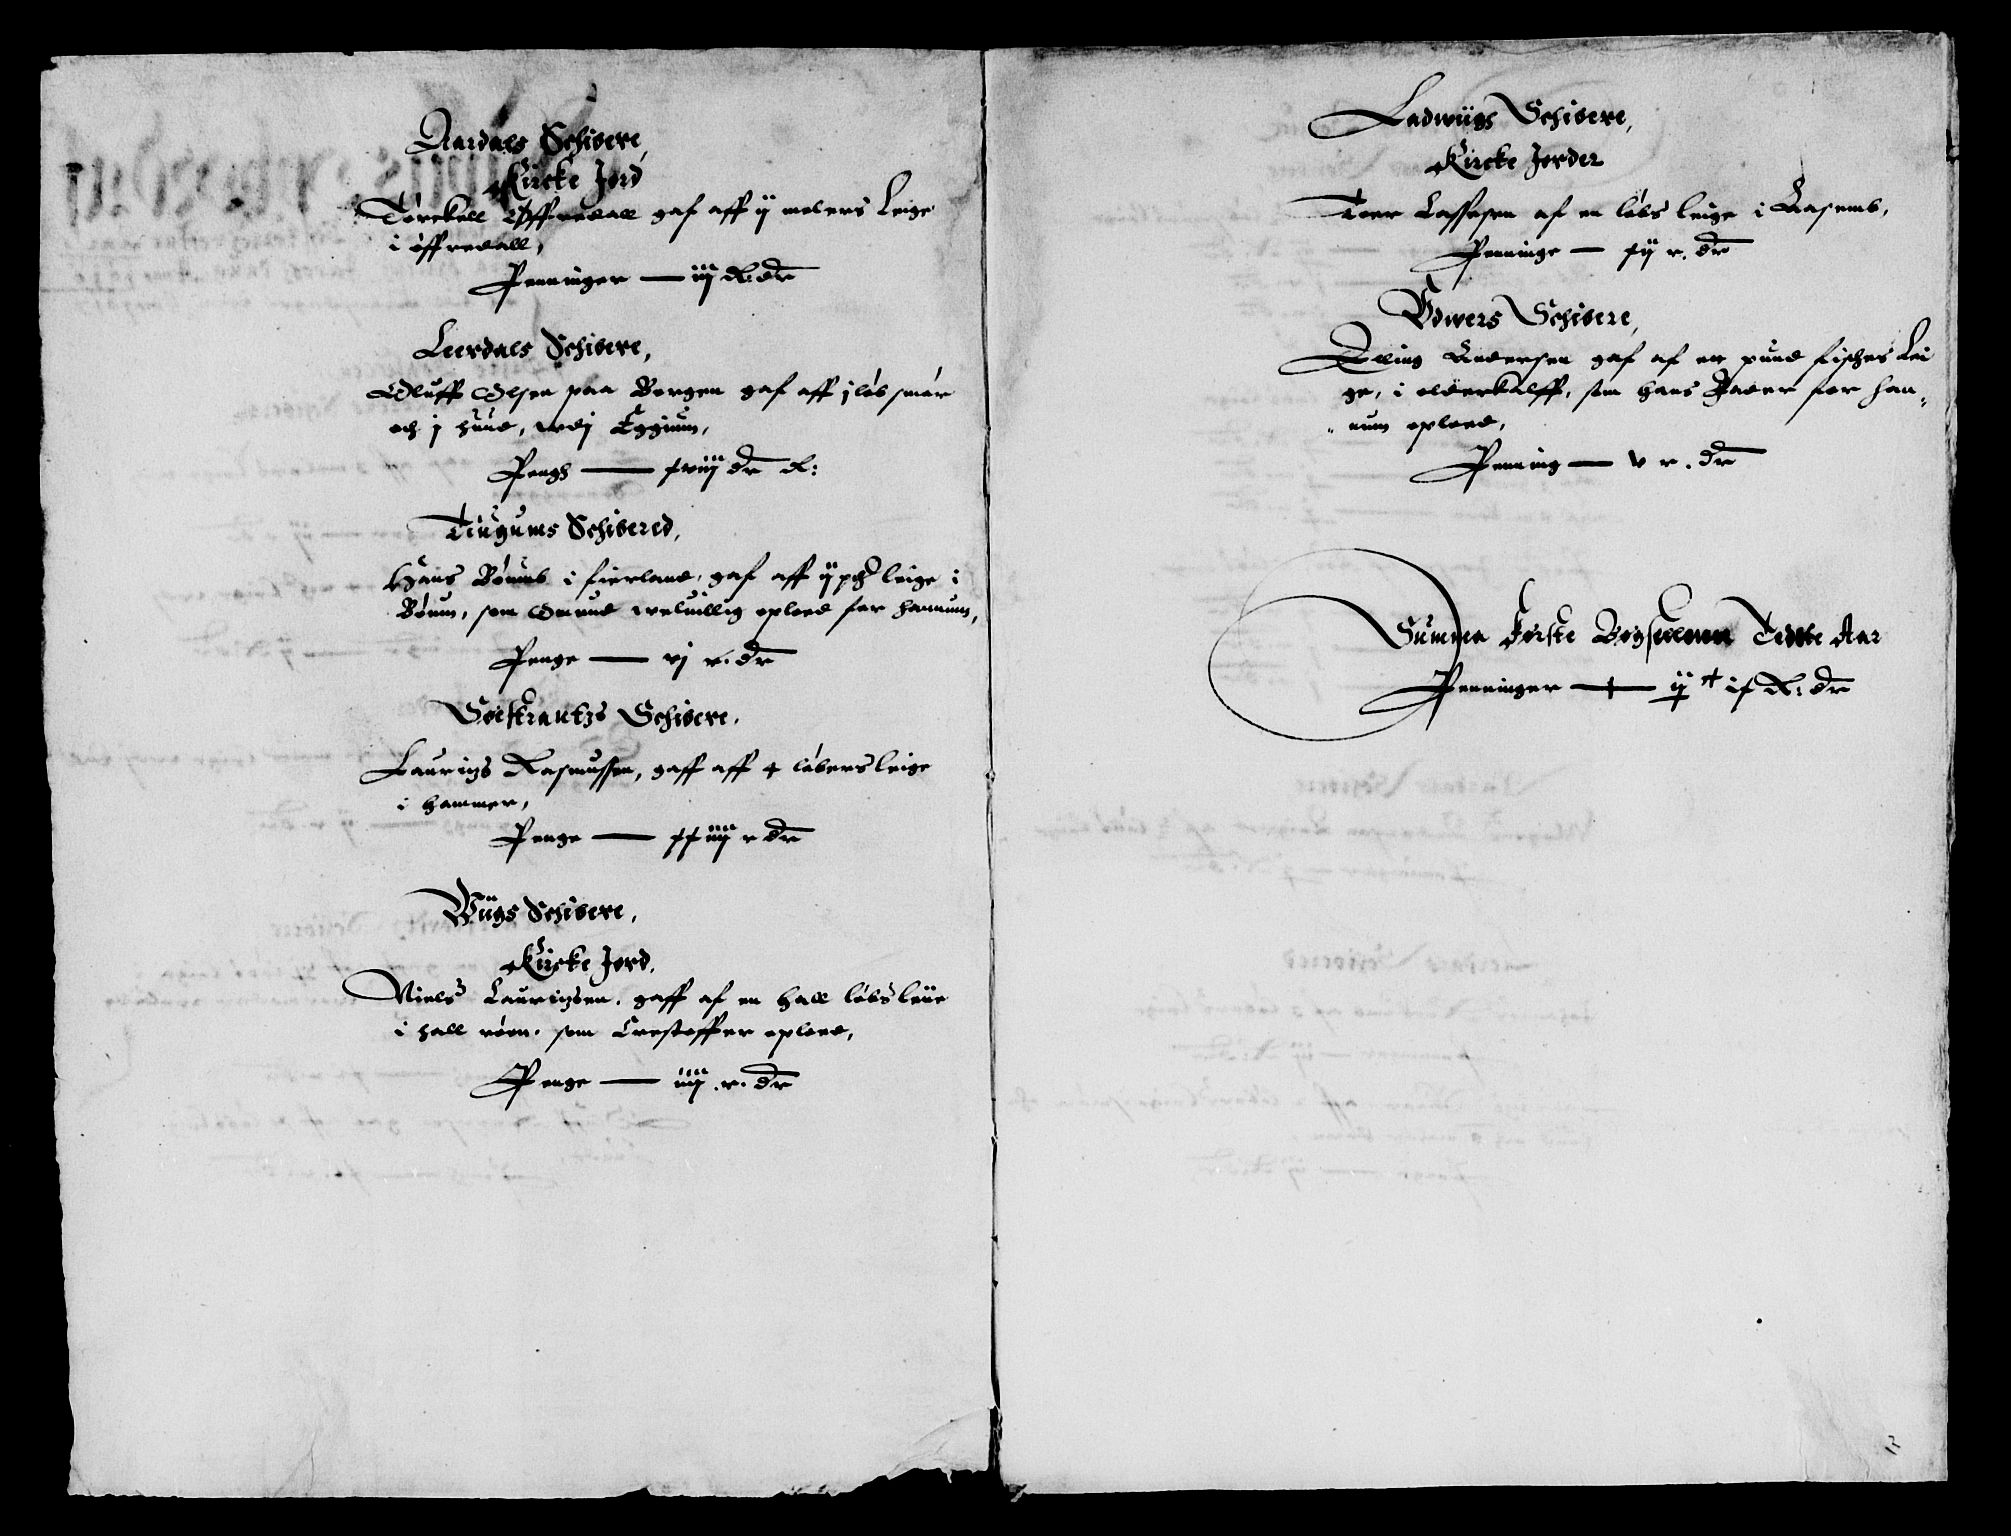 Aardals Schibere,
Kircke Jord
Torckell Øffredall gaf aff ij melers Leige
i øffredall,
Penninger — iij R: dr
Leerdals Schibere,
Oluff Olsen paa Borgen gaf aff j løb smør
och j huud, wdj Eggium,
Pengh — xviij dr R:
Tiugums Schibered,
Hans Bøiumb i fierland, gaf aff ij pd leige i
Bøium, som Omund weluillig oplod for hannum,
Penge — vj r. dr
Soelstrantzs Schibere,
Lauritzs Rasmussen, gaff aff 4 løbers leige
i hammer,
Penge — xxiiij r dr
Wiigs Schibere,
Kircke Jord,
Niels Lauritzsen, gaff af en hall løbs leie
i hall røen, som Crestoffer oplod,
Penge — iiij r. dr
Ladwiigs Schibere,
Kircke Jorder
Toer Lassesen af en løbs leige i Aasemb,
Penninge — xij r. dr
Vdwers Schibere,
Elling Andersen gaf af en pund fisches Lei
ge, i olderkalff, som hans Fader for han,
num oplod,
Penning — v r. dr
Summa Første Bøgselenn Tedtte Aar
Penninger — ij c ix R: dr